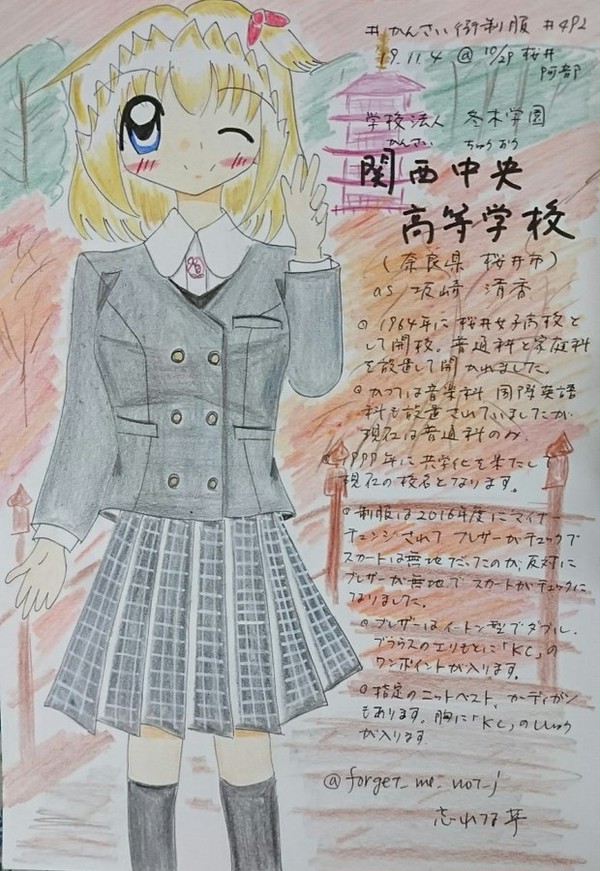 #かんさい例制服 #492
19.11.4 @ 10/29 桜井
阿部
学校法人 冬木学園
かんさい ちゅうおう
関西中央
高等学校
(奈良県 桜井市)
as 坂崎 清香
◎1964年に桜井女子高校と
して開校。普通科と家庭科
を設置して開かれました。
◎かつては音楽科 国際英語
科も設置されていましたが
現在は普通科のみ。
◎1999年に共学化を果たして
現在の校名となります。
◎制服は2016年度にマイナー
チェンジされて ブレザーがチェックで
スカートは無地だったのが、反対に
ブレザーが無地で スカートがチェックに
なりました。
◎ブレザーはイートン型でダブル。
ブラウスのえりもとに「KC」の
ワンポイントが入ります。
◎指定のニットベスト、カーディガン
もあります。胸に「KC」のししゅう
が入ります
@forget_me_not_j
忘れな草